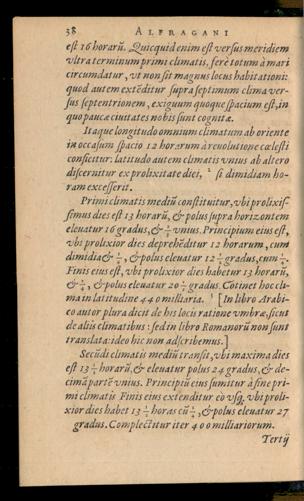 38 ALFRAGANI
est 16 horarū. Quicquid enim est versus meridiem
vltra terminum primi climatis, ferè totum à mari
circumdatur, vt non sit magnus locus habitationi:
quod autem extēditur supra septimum clima ver-
sus septentrionem, exiguum quoque spacium est, in
quo paucæ ciuitates nobis sunt cognitæ.
Itaque longitudo omnium climatum ab oriente
in occasum spacio 12 horarum à reuolutione cælesti
conficitur: latitudo autem climatis vnius ab altero
discernitur ex prolixitate diei, si dimidiam ho-
ram excesserit.
Primi climatis mediū constituitur, vbi prolixis-
simus dies est 13 horarū, & polus supra horizontem
eleuatur 16 gradus, & vnius. Principium eius est,
vbi prolixior dies deprehēditur 12 horarum, cum
dimidia & 1/4, & polus eleuatur 12 1/2 gradus, cum 1/4.
Finis eius est, vbi prolixior dies habetur 13 horarū,
& 1/4, & polus eleuatur 20 1/2 gradus. Cōtinet hoc cli-
ma in latitudine 440 milliaria. [In libro Arabi-
co autor plura dicit de his locis ratione vmbræ, sicut
de aliis climatibus: sed in libro Romanorū non sunt
translata: ideo hic non adscribemus.]
Secūdi climatis mediū transit, vbi maxima dies
est 13 1/2 horarū, & eleuatur polus 24 gradus, & de-
cima parte vnius. Principiū eius sumitur à fine pri-
mi climatis Finis eius extenditur eò vsq, vbi proli-
xior dies habet 13 1/2 horas cū 1/4, & polus eleuatur 27
gradus. Complectitur iter 400 milliariorum.
Tertij